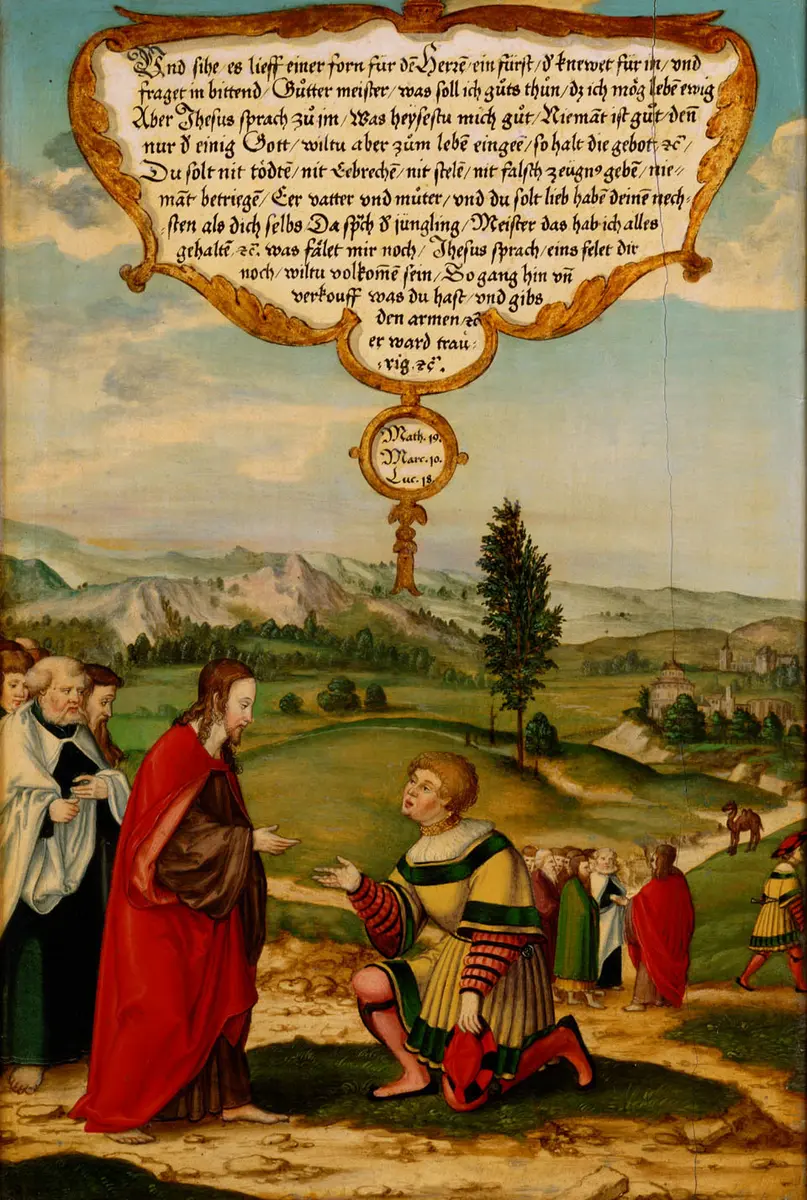 Vnd sihe es lieff einer forn für dē Herrē ein fürst / d̕ knewet für in / vnd
fraget in bittend / Gůtter meister / was soll ich gůts thůn / dz ich mög lebē ewig
Aber Jhesus sprach zů im / Was heysestu mich gůt / Niemāt ist gůt deñ
nur d̕ einig Gott / wiltu aber zům lebē eingeē / so halt die gebot / ꝛc̄ /
Du solt nit tödtē / nit Eebrechē / nit stelē / nit falsch zeugnꝰ gebē / nie-
māt betriegē / Eer vatter vnd můter / vnd du solt lieb habē deinē nech-
sten als dich selbs Da sp̄ch d̕ jüngling / Meister das hab ich alles
gehaltē ꝛc̄. was fälet mir noch / Jhesus sprach / eins felet dir
noch / wiltu volkom̄e sein / So gang hin vn̄
verkouff was du hast / vnd gibs
den armen / ꝛc̄
er ward trau-
rig ꝛc̄.
Math. 19.
Marc. 10.
Luc. 18.